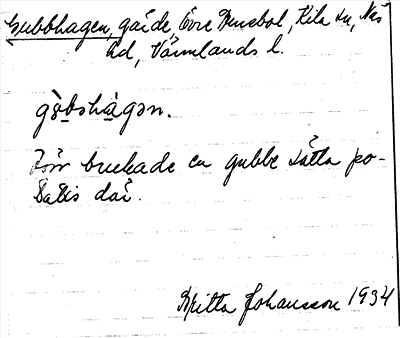 Gubbhagen, gärde, Övre Brusbol, Kila sn, Näs
hd, Värmlands l.
gòbshàgən.
Förr brukade en gubbe sätta po-
tatis där.
Britta Johansson 1934